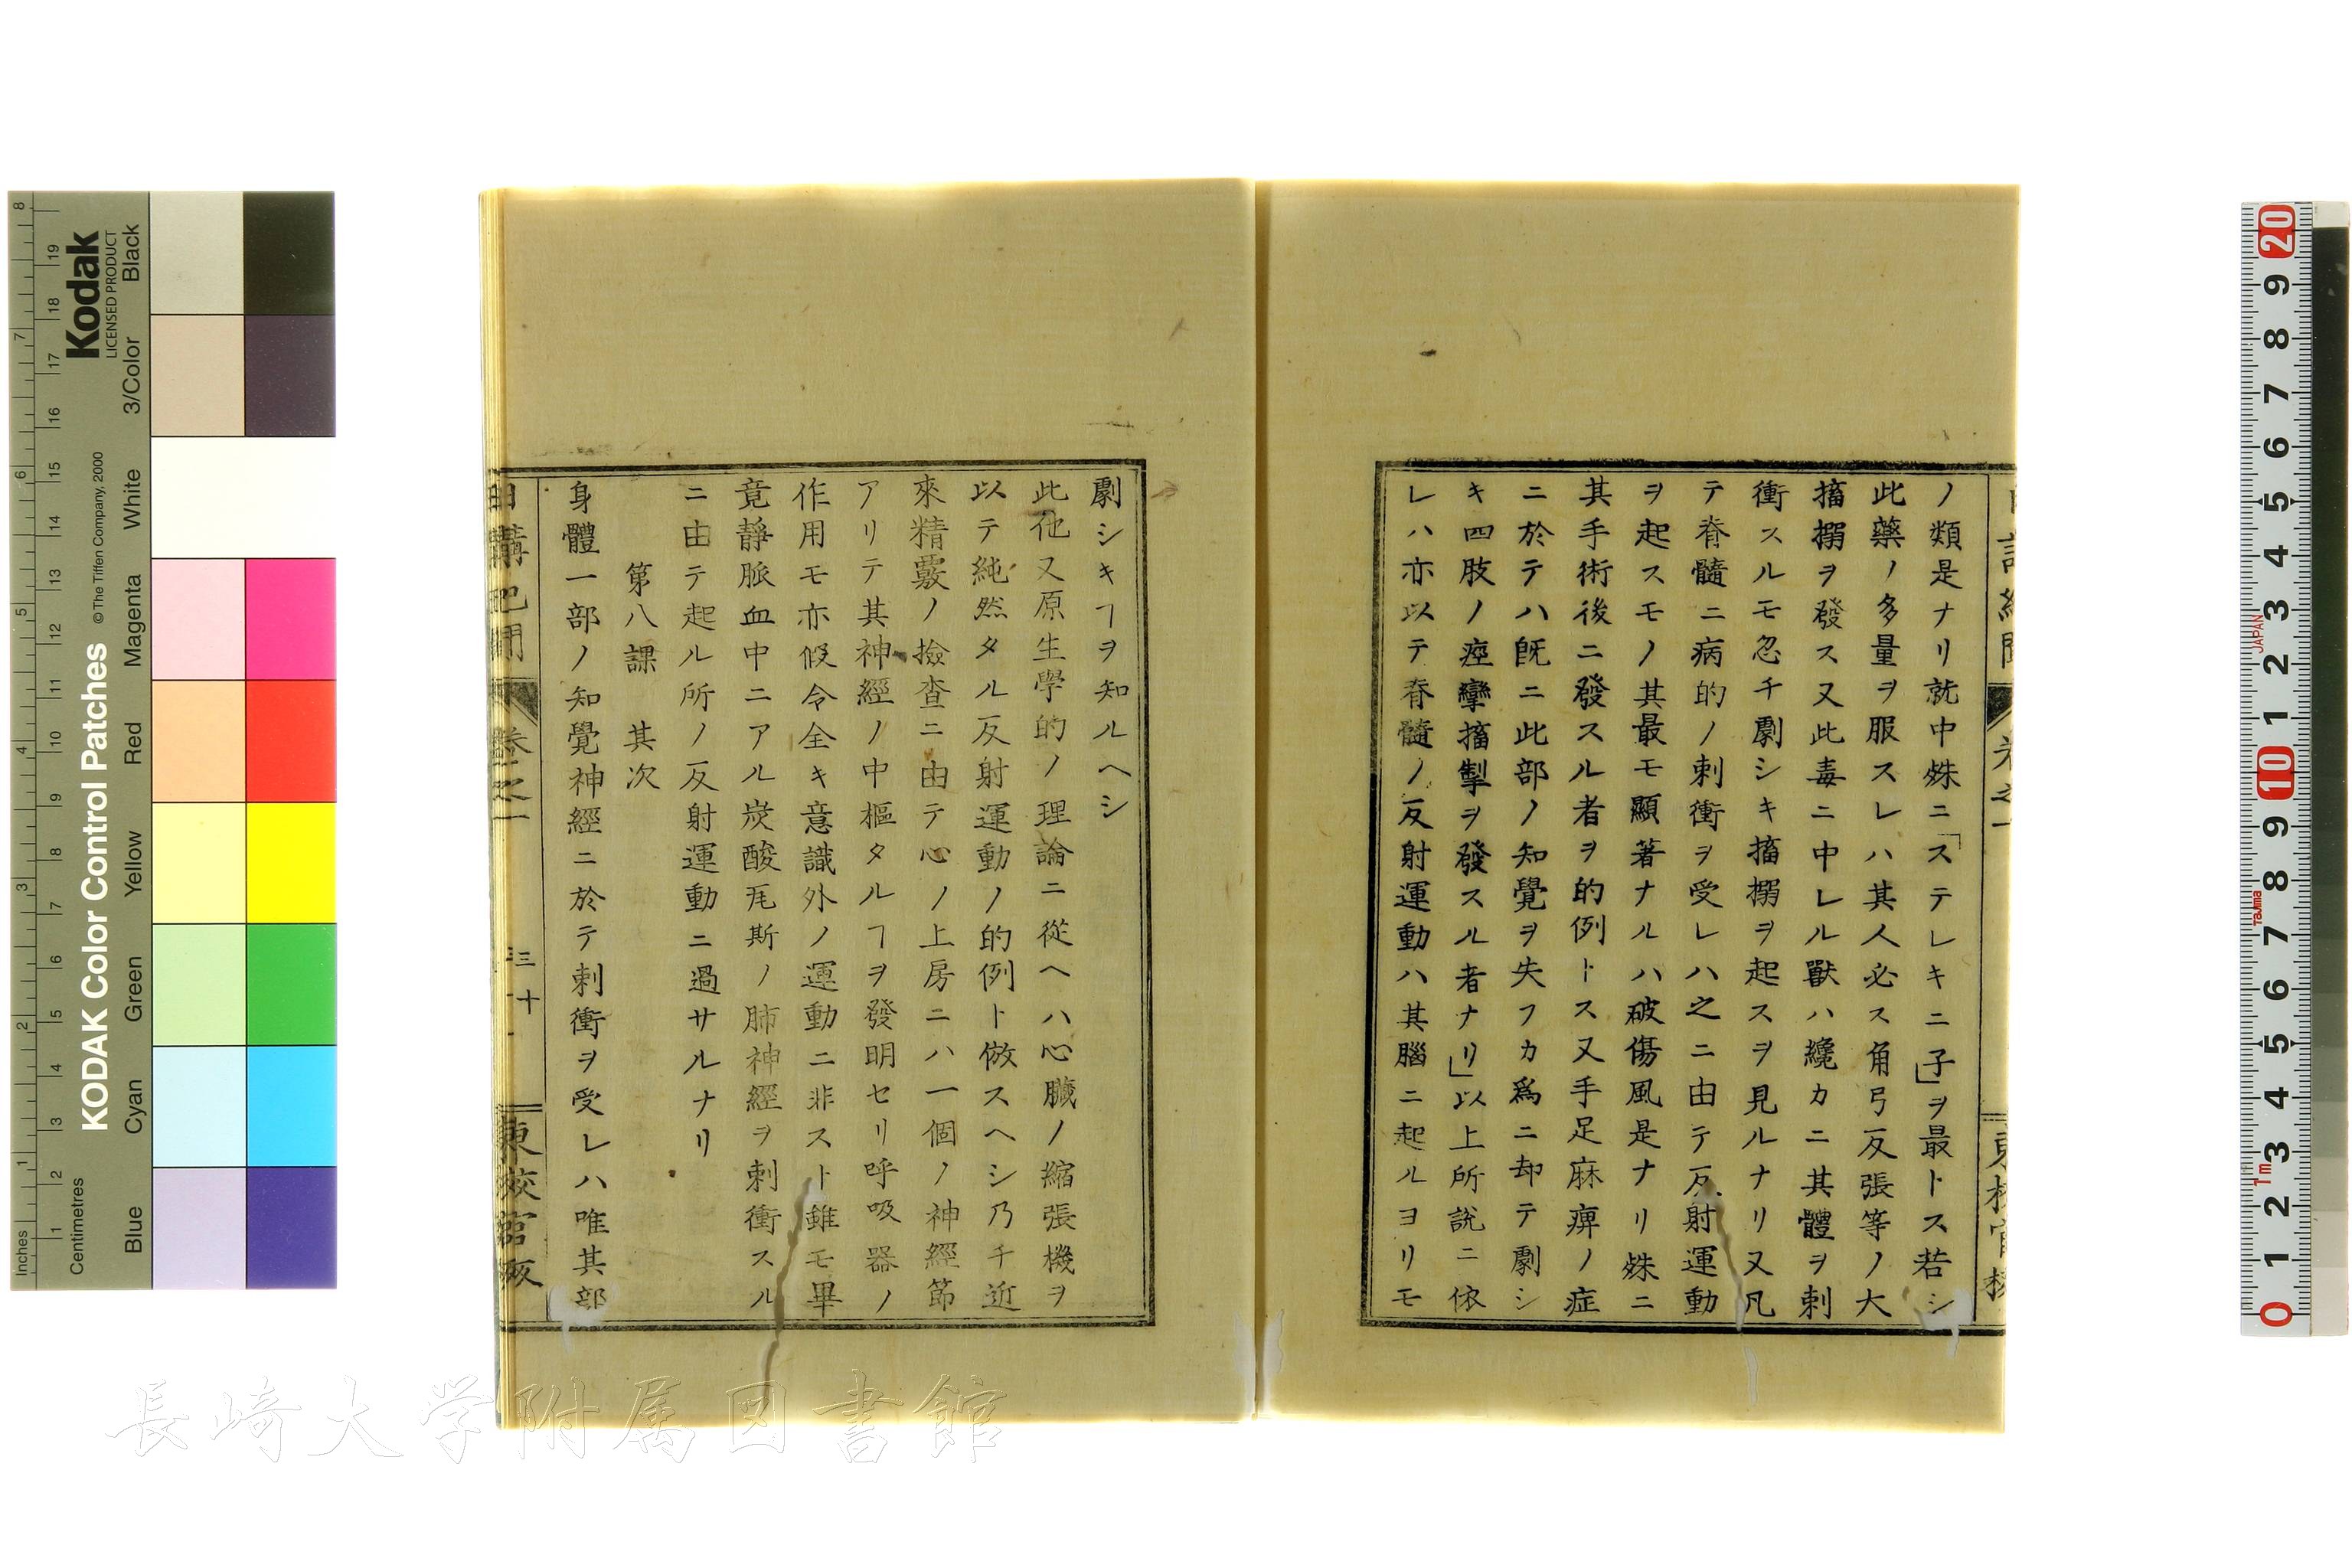 ノ類是ナリ就中殊ニ「ステレキニ子」ヲ最トス若シ
此藥ノ多量ヲ服スレハ其人必ス角弓反張等ノ大
搐搦ヲ發ス又此毒ニ中レル獸ハ纔カニ其體ヲ刺
衝スルモ忽チ劇シキ搐搦ヲ起スヲ見ルナリ又凡
テ脊髓ニ病的ノ刺衝ヲ受レハ之ニ由テ反射運動
ヲ起スモノ其最モ顯著ナルハ破傷風是ナリ殊ニ
其手術後ニ發スル者ヲ的例トス又手足麻痺ノ症
ニ於テハ既ニ此部ノ知覺ヲ失フカ爲ニ却テ劇シ
キ四肢ノ痙攣搐掣ヲ發スル者ナリ」以上所說ニ依
レハ亦以テ脊髓ノ反射運動ハ其腦ニ起ルヨリモ
劇シキヿヲ知ルヘシ
此他又原生學的ノ理論ニ從ヘハ心臟ノ縮張機ヲ
以テ純然タル反射運動ノ的例ト倣スヘシ乃チ近
來精覈ノ撿查ニ由テ心ノ上房ニハ一個ノ神經節
アリテ其神經ノ中樞タルヿヲ發明セリ呼吸器ノ
作用モ亦假令全キ意識外ノ運動ニ非スト雖モ畢
竟靜脈血中ニアル炭酸瓦斯ノ肺神經ヲ刺衝スル
ニ由テ起ル所ノ反射運動ニ過サルナリ
第八課 其次
身體一部ノ知覺神經ニ於テ刺衝ヲ受レハ唯其部
日講記聞 卷之一 三十一 東校官版
Kodak
LICENSED PRODUCT
KODAK Color Control Patches
© The Tiffen Company, 2000
Inches 1 2 3 4 5 6 7 8
Centimetres 1 2 3 4 5 6 7 8 9 10 11 12 13 14 15 16 17 18 19
Blue Cyan Green Yellow Red Magenta White 3/Color Black
20 9 8 7 6 5 4 3 2 1 10 9 8 7 6 5 4 3 2 1 0
JAPAN
Tajima
1m
長崎大学附属図書館